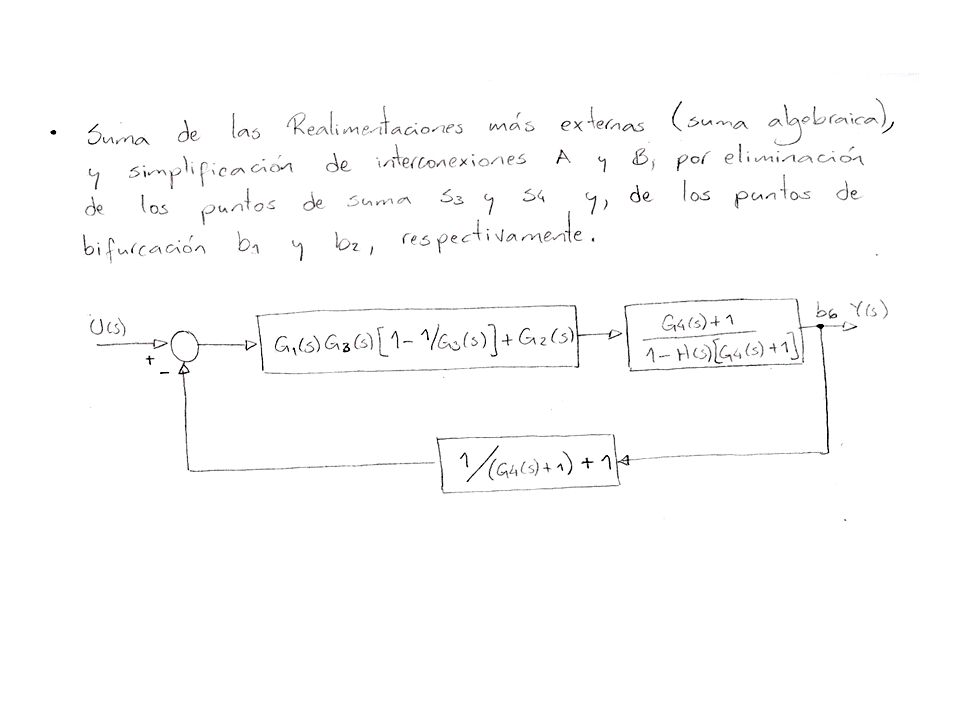 • Suma de las Realimentaciones más externas (suma algebraica),
y simplificación de interconexiones A y B, por eliminación
de los puntos de suma S3 y S4 y, de los puntos de
bifurcación b1 y b2, respectivamente.
U(s)
+
-
G1(s)G3(s)[1-1/G3(s)]+G2(s)
G4(s)+1
1-H(s)[G4(s)+1]
b6 Y(s)
1/(G4(s)+1)+1